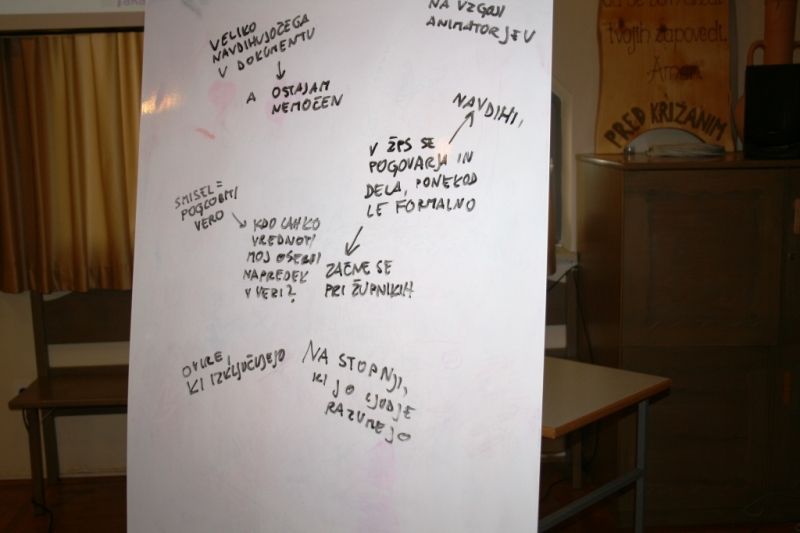 VELIKO
NAVDIHUJOČEGA
V DOKUMENTU
A OSTAJAM
NEMOČEN
NA VZGOJI
ANIMATORJEV
NAVDIHI,
V ŽPS SE
POGOVARJA IN
DELA, PONEKOD
LE FORMALNO
ZAČNE SE
PRI ŽUPNIKIH
SMISEL =
POGLOBITI
VERO
KDO LAHKO
VREDNOTI
MOJ OSEBNI
NAPREDEK
V VERI?
OVIRE,
KI IZKLJUČUJEJO
NA STOPNJI,
KI JO LJUDJE
RAZUMEJO
tvojih zapovedi.
Amen.
PRED KRIŽANIM